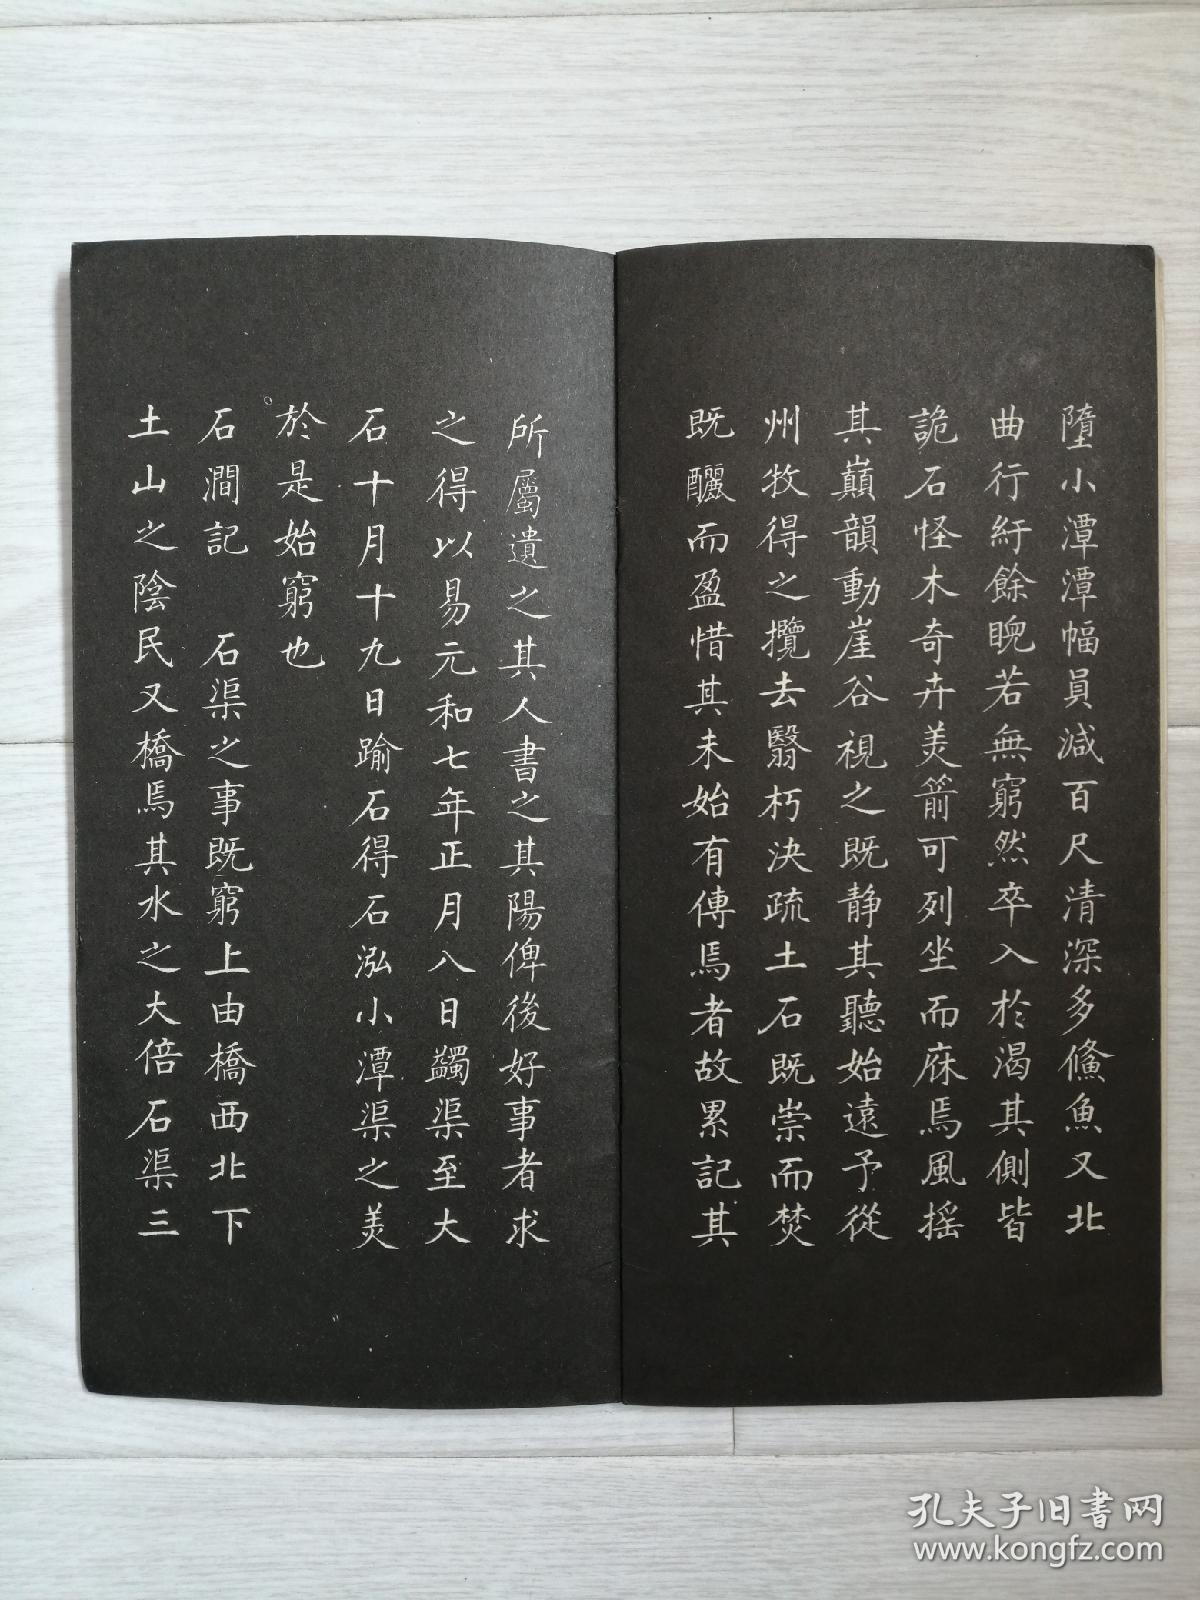 墮小潭潭幅員減百尺清深多鯈魚又北
曲行紆餘睨若無窮然卒入於渴其側皆
詭石怪木奇卉美箭可列坐而庥焉風搖
其巔韻動崖谷視之既静其聽始遠予從
州牧得之攬去翳朽決疏土石既崇而焚
既釃而盈惜其未始有傳焉者故累記其
所屬遺之其人書之其陽俾後好事者求
之得以易元和七年正月八日蠲渠至大
石十月十九日踰石得石泓小潭渠之美
於是始窮也
石澗記 石渠之事既窮上由橋西北下
土山之陰民又橋焉其水之大倍石渠三
孔夫子旧书网
www.kongfz.com